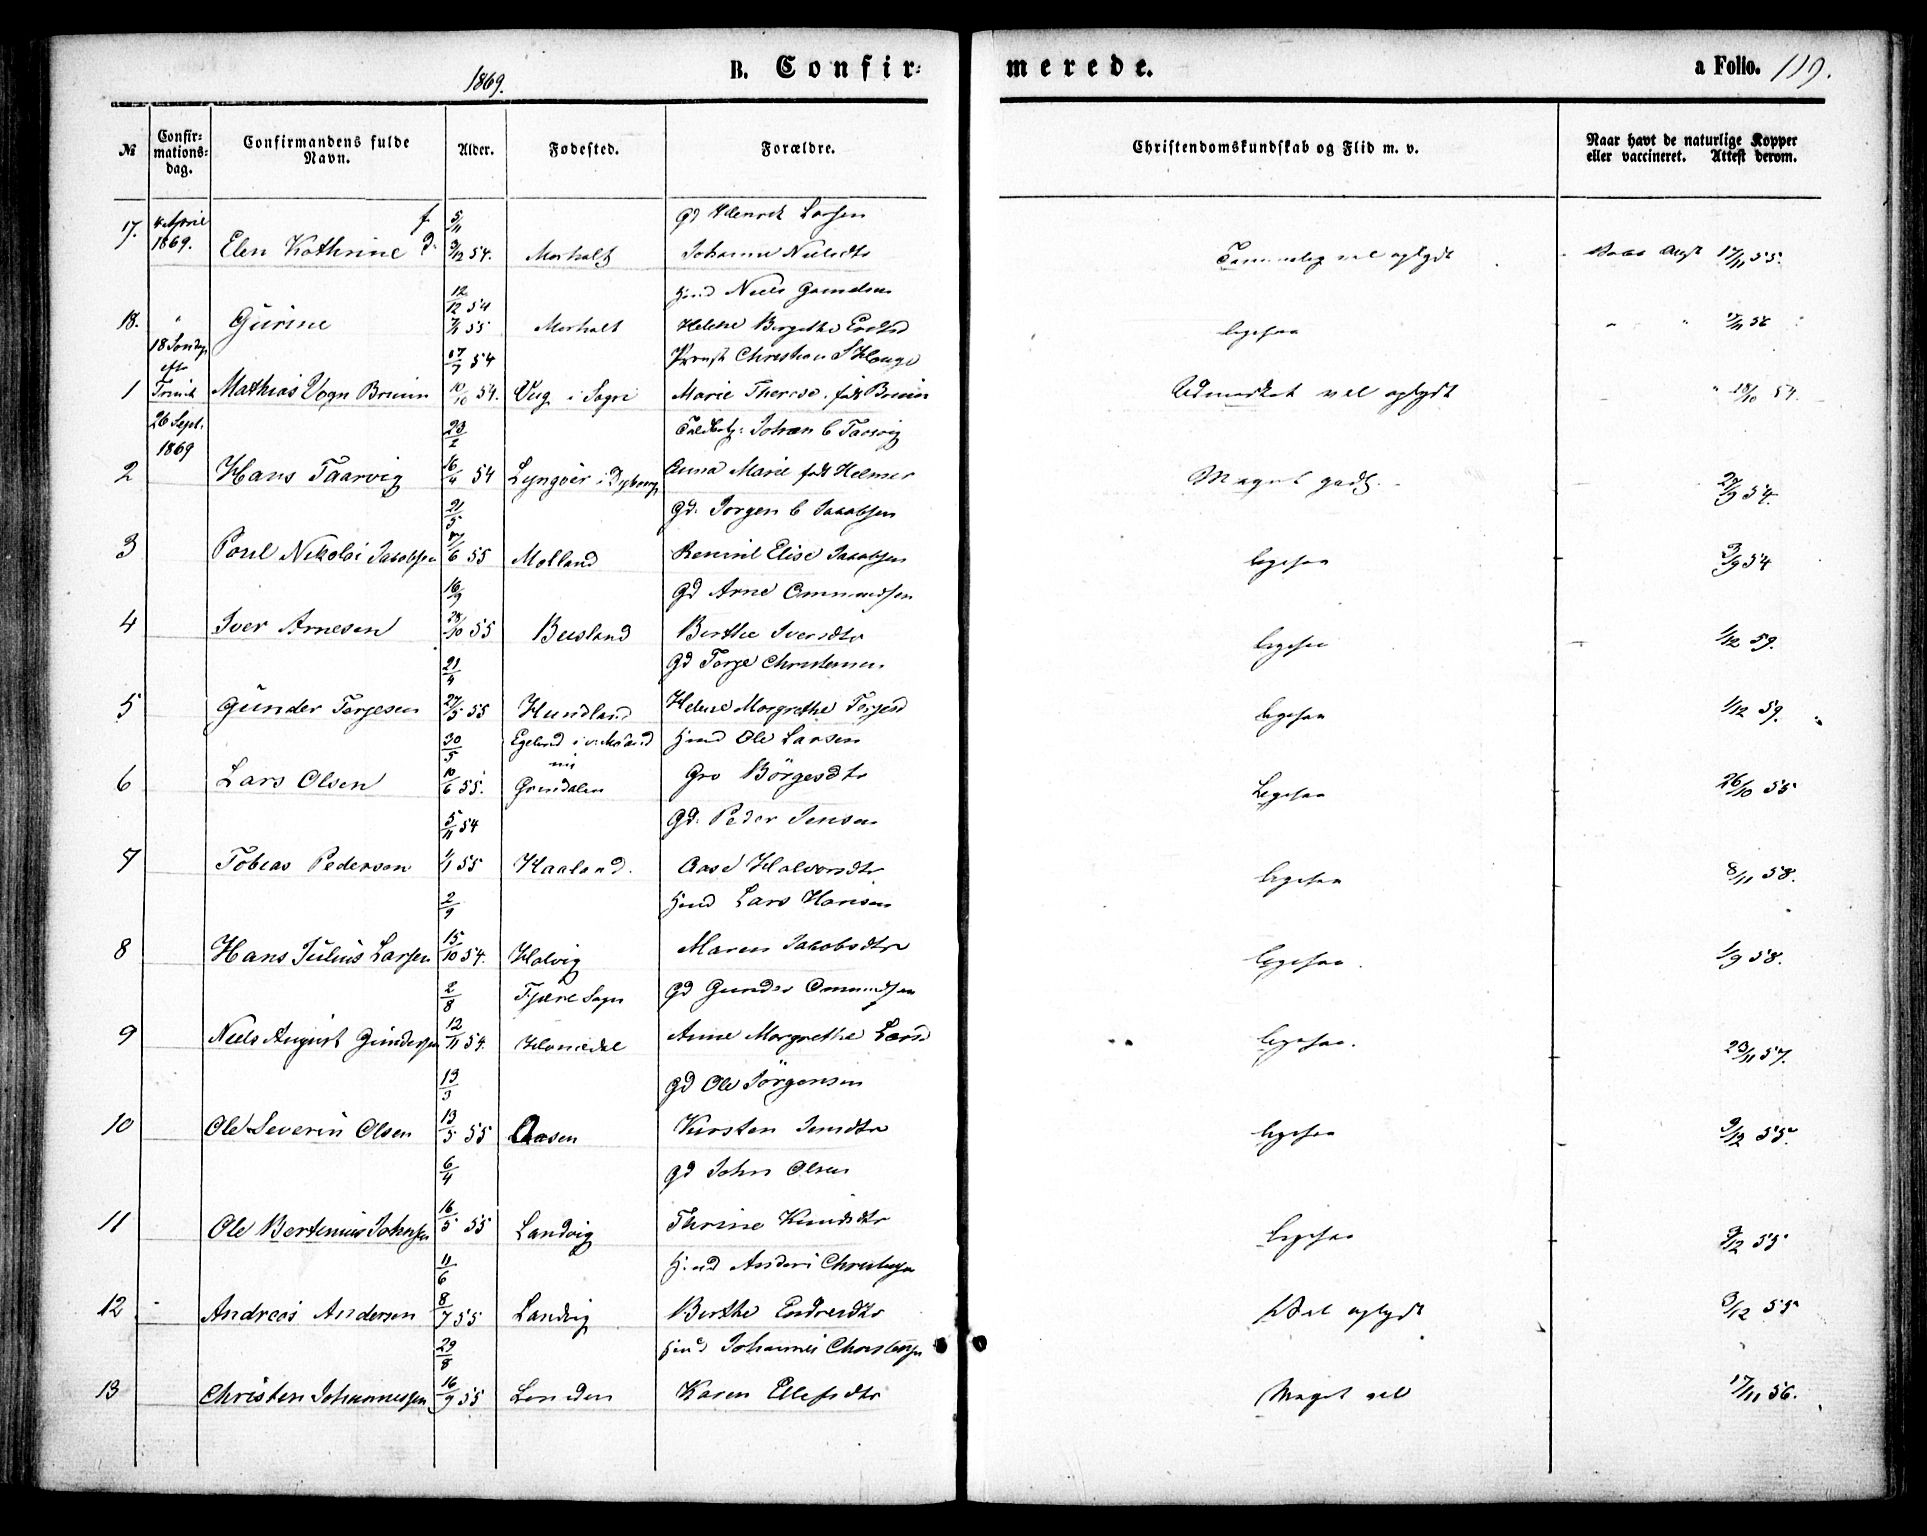 1869.
B. Confirmerede.
a Folio. 119.
№
Confirmationsdag.
Confirmandens fulde Navn.
Alder.
Fødested.
Forældre.
Christendomskundskab og Flid m. v.
Naar havt de naturlige Kopper eller vaccineret. Attest derom.
f. 5/11 Gd Henrik Larsen
17. 4 April 1869. Elen Kathrine d. 3/12 54. Morholt Johanne Nielsdtr vel oplyst 17/11 55.
12/12 54 Niels
18. " Gurine 7/1 55 Morholt Helene Birgithe ligesaa 17/11 56
18 Søndag 17/7 54 Provst Christian S Hauge
1 eft. Trinit. Mathias Vogn Bruun 10/10 54. Vug i Sogn Marie Therese født Bruun Udmærket vel oplyst " 18/10 54.
26 Sept. 1869 23/2 Johan C Taarvig
2 Hans Taarvig 16/4 54 Lyngøer i Dybvaag Anna Marie født Helmer Meget godt. 29/9 54.
21/5 Gd. Jørgen C Jacobsen
3 Poul Nikolai Jacobsen 7/6 55 Molland Elise Jacobsen ligesaa 3/9 54
16/9 Gd Arne Ommundsen
4 Iver Arnesen 28/10 55 Beisland Berthe Iversdtr ligesaa 1/12 59.
21/4 Gd Torje Christensen
5 Gunder Torjesen 27/5 55 Hundland Helene Margrethe Torjesd ligesaa 1/12 59.
30/5 Egeland i v. Moland Ole Larsen
6 Lars Olsen 10/6 55. nu Grendalen Gro Börgesdtr Ligesaa 26/10 55
5/11 54 Gd. Peder Jensen
7 Tobias Pedersen 1/1 55 Haaland. Aase Halvorsdtr ligesaa 8/11 58.
2/9 Lars Hansen
8 Hans Julius Larsen 15/10 54. Halvig Maren Jakobsdtr ligesaa. 1/9 58.
2/8 Fjære Sogn Gd Gunder Ommundsen
9 Niels August Gundersen 12/11 54. Homedal Anne Margrethe Larsd ligesaa. 23/11 57.
13/3 Gd Ole Jörgensen
10 Ole Severin Olsen 13/5 55 Aasen Kirsten Jensdtr ligesaa 3/12 55.
6/4 Gd John Olsen
11 Ole Bertinius Johnsen 16/5 55 Landvig Thrine Knudsdtr ligesaa 3/12 55
11/6 Anders Christensen
12 Andreas Andersen 8/7 55 Landvig Berthe Endresdtr Vel oplyst 3/12 55
29/8 Johannes Christensen
13 Christen Johannessen 16/9 55 Lunden Karen Ellefsdtr Meget vel 17/11 56.